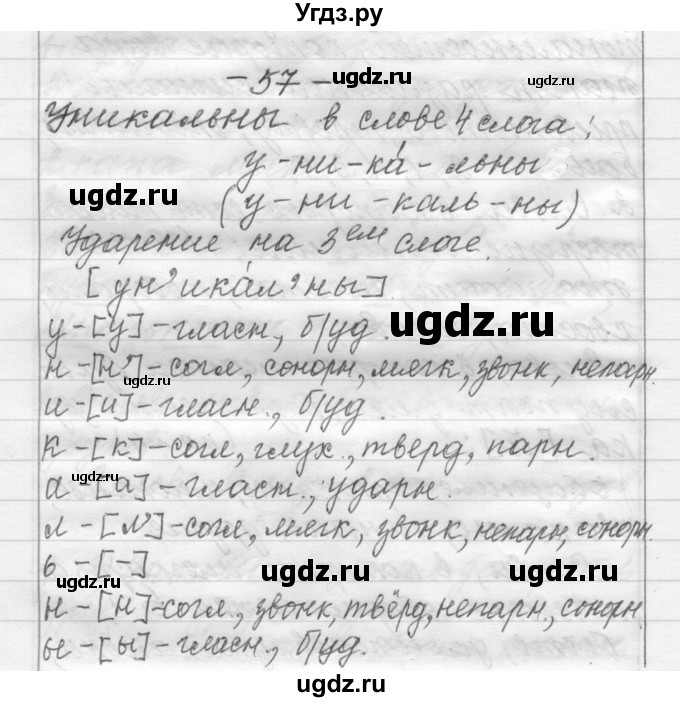 Угдз.ру
- 57 -
ugdz.ru
ugdz.ru
Уникальны в слове 4 слога:
у-ни-ка́-льны
ugdz.ru
(у-ни-каль-ны)
Ударение на 3ем слоге.
[ун’ика́л’ны]
ugdz.ru
у-[у]-гласн, б/уд.
н-[н’]-согл, сонорн, мягк, звонк, непарн.
ugdz.ru
и-[и]-гласн., б/уд.
к-[к]-согл, глух., тверд, парн.
ugdz.ru
а-[а]-гласн., ударн.
л-[л’]-согл, мягк, звонк, непарн, сонорн.
ь-[-]
ugdz.ru
ugdz.ru
ugdz.ru
н-[н]-согл., звонк, твёрд, непарн., сонорн.
ы-[ы]-гласн., б/уд.
ugdz.ru